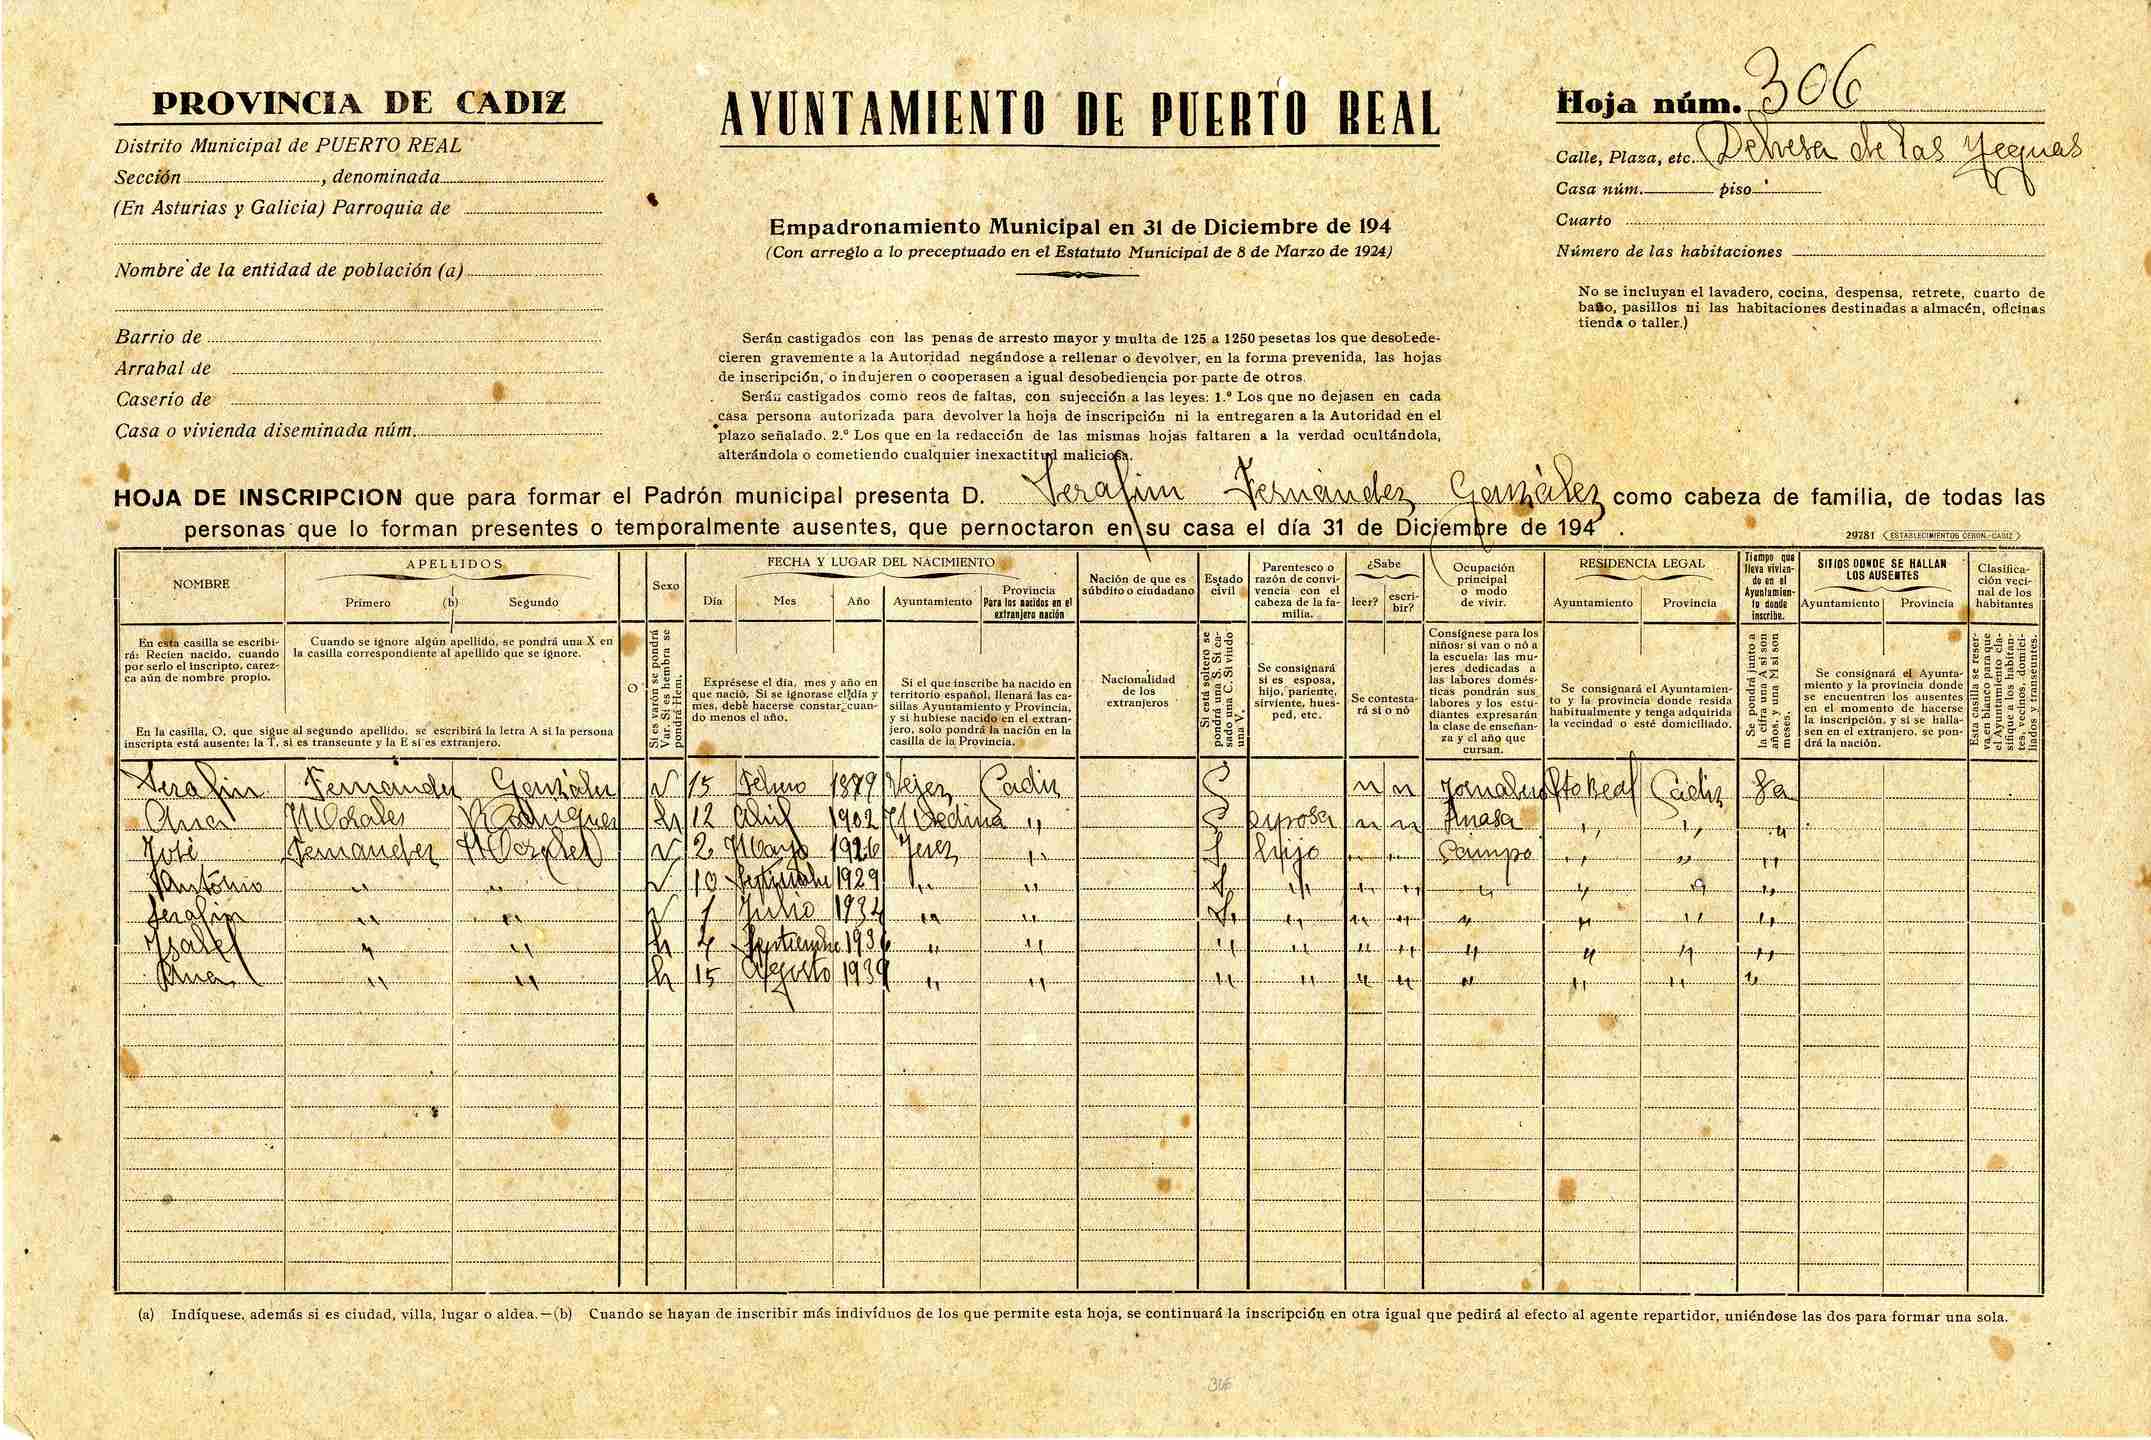 PROVINCIA DE CADIZ
Distrito Municipal de PUERTO REAL
Sección , denominada
(En Asturias y Galicia) Parroquia de
Nombre de la entidad de población (a)
Barrio de
Arrabal de
Caserío de
Casa o vivienda diseminada núm.
AYUNTAMIENTO DE PUERTO REAL
Empadronamiento Municipal en 31 de Diciembre de 194
(Con arreglo a lo preceptuado en el Estatuto Municipal de 8 de Marzo de 1924)
Serán castigados con las penas de arresto mayor y multa de 125 a 1250 pesetas los que desobede-
cieren gravemente a la Autoridad negándose a rellenar o devolver, en la forma prevenida, las hojas
de inscripción, o indujeren o cooperasen a igual desobediencia por parte de otros.
Serán castigados como reos de faltas, con sujección a las leyes: 1.º Los que no dejasen en cada
casa persona autorizada para devolver la hoja de inscripción ni la entregaren a la Autoridad en el
plazo señalado. 2.º Los que en la redacción de las mismas hojas faltaren a la verdad ocultándola,
alterándola o cometiendo cualquier inexactitud maliciosa.
Hoja núm. 306
Calle, Plaza, etc. Dehesa de las Yeguas
Casa núm. piso
Cuarto
Número de las habitaciones
No se incluyan el lavadero, cocina, despensa, retrete, cuarto de
baño, pasillos ni las habitaciones destinadas a almacén, oficinas
tienda o taller.)
HOJA DE INSCRIPCION que para formar el Padrón municipal presenta D. Serafin Fernández González como cabeza de familia, de todas las
personas que lo forman presentes o temporalmente ausentes, que pernoctaron en su casa el día 31 de Diciembre de 194 .
29781 ESTABLECIMIENTOS CERON.-CADIZ
NOMBRE
APELLIDOS
Primero (b) Segundo
O
Sexo
FECHA Y LUGAR DEL NACIMIENTO
Día Mes Año Ayuntamiento
Provincia
Para los nacidos en el
extranjero nación
Nación de que es
súbdito o ciudadano
Estado
civil
Parentesco o
razón de convi-
vencia con el
cabeza de la fa-
milia.
¿Sabe
leer? escri-
bir?
Ocupación
principal
o modo
de vivir.
RESIDENCIA LEGAL
Ayuntamiento Provincia
Tiempo que
lleva vivien-
do en el
Ayuntamien-
to donde
inscribe.
SITIOS DONDE SE HALLAN
LOS AUSENTES
Ayuntamiento Provincia
Clasifica-
ción veci-
nal de los
habitantes
En esta casilla se escribi-
rá: Recien nacido, cuando
por serlo el inscripto, carez-
ca aún de nombre propio.
Cuando se ignore algún apellido, se pondrá una X en
la casilla correspondiente al apellido que se ignore.
En la casilla, O, que sigue al segundo apellido, se escribirá la letra A si la persona
inscripta está ausente; la T, si es transeunte y la E si es extranjero.
Si es varón se pondrá
Var. Si es hembra se
pondrá Hem.
Exprésese el día, mes y año en
que nació. Si se ignorase el día y
mes, debe hacerse constar, cuan-
do menos el año.
Si el que inscribe ha nacido en
territorio español, llenará las ca-
sillas Ayuntamiento y Provincia,
y si hubiese nacido en el extran-
jero, solo pondrá la nación en la
casilla de la Provincia.
Nacionalidad
de los
extranjeros
Si está soltero se
pondrá una S. Si ca-
sado una C. Si viudo
una V.
Se consignará
si es esposa,
hijo, pariente,
sirviente, hues-
ped, etc.
Se contesta-
rá si o nó
Consígnese para los
niños: si van o nó a
la escuela: las mu-
jeres dedicadas a
las labores domés-
ticas pondrán sus
labores y los estu-
diantes expresarán
la clase de enseñan-
za y el año que
cursan.
Se consignará el Ayuntamien-
to y la provincia donde resida
habitualmente y tenga adquirida
la vecindad o esté domiciliado.
Se pondrá junto a
la cifra una A si son
años, y una M si son
meses.
Se consignará el Ayunta-
miento y la provincia donde
se encuentren los ausentes
en el momento de hacerse
la inscripción, y si se halla-
sen en el extranjero, se pon-
drá la nación.
Esta casilla se reser-
va en blanco para que
el Ayuntamiento cla-
sifique a los habitan-
tes, vecinos, domici-
liados y transeuntes.
Serafin Fernandez González v 15 Febrero 1879 Vejez Cadiz S n n Jornalero Pto Real Cádiz
Ana Morales Rodriguez h 12 Abril 1902 Medina " S esposa n n " " "
José Fernandez Morales v 2 Mayo 1926 Jerez " S. hijo " " Campo " " "
Antonio " " v 10 Septiembre 1929 " " S. " " " " " " "
Serafin " " v 1 Julio " " S. " " " " " " "
Ysabel " " h 4 Septiembre 1936 " " " " " " " " " "
Ana " " h 15 Agosto 1939 " " " " " " " " " "
(a) Indíquese, además si es ciudad, villa, lugar o aldea.—(b) Cuando se hayan de inscribir más indivíduos de los que permite esta hoja, se continuará la inscripción en otra igual que pedirá al efecto al agente repartidor, uniéndose las dos para formar una sola.
306